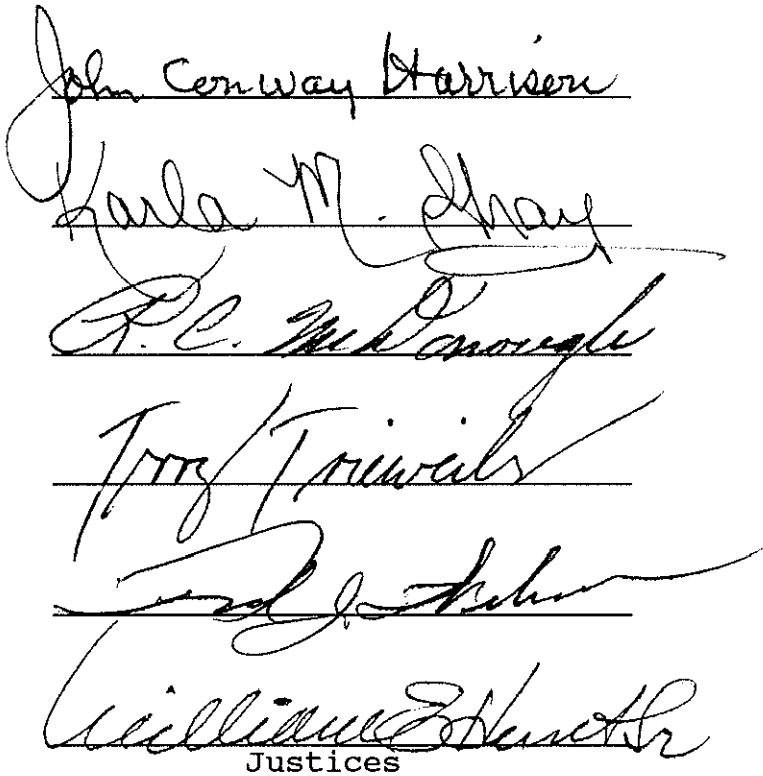 John Conway Harrison
Karla M. Gray
R. C. McDonough
Terry Trieweiler
Fred J. Weber
William E. Hunt Sr
Justices